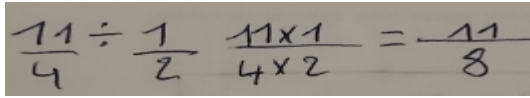 11/4 ÷ 1/2 11×1/4×2 = 11/8